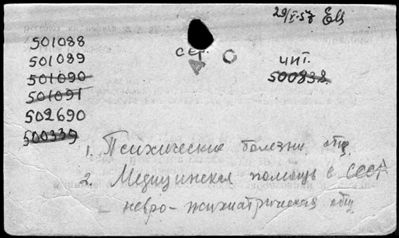 29/V.57
501088
501089
501090
501091
502690
500339
сер. О
чит.
500832
1. Психические болезни общ.
2. Медицинская помощь в СССР
— невро-психиатрическая общ